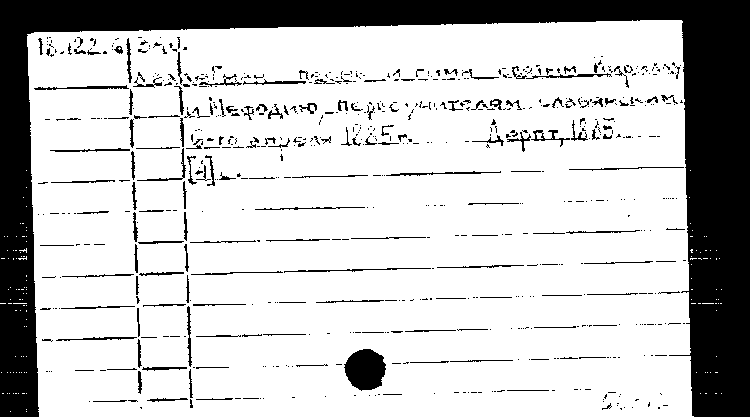 18.122.6
песнь и гимн святым Кириллу
и Мефодию, первоучителям славянским.
6-го апреля 1885 г. Дерпт, 1885.
[4] с.